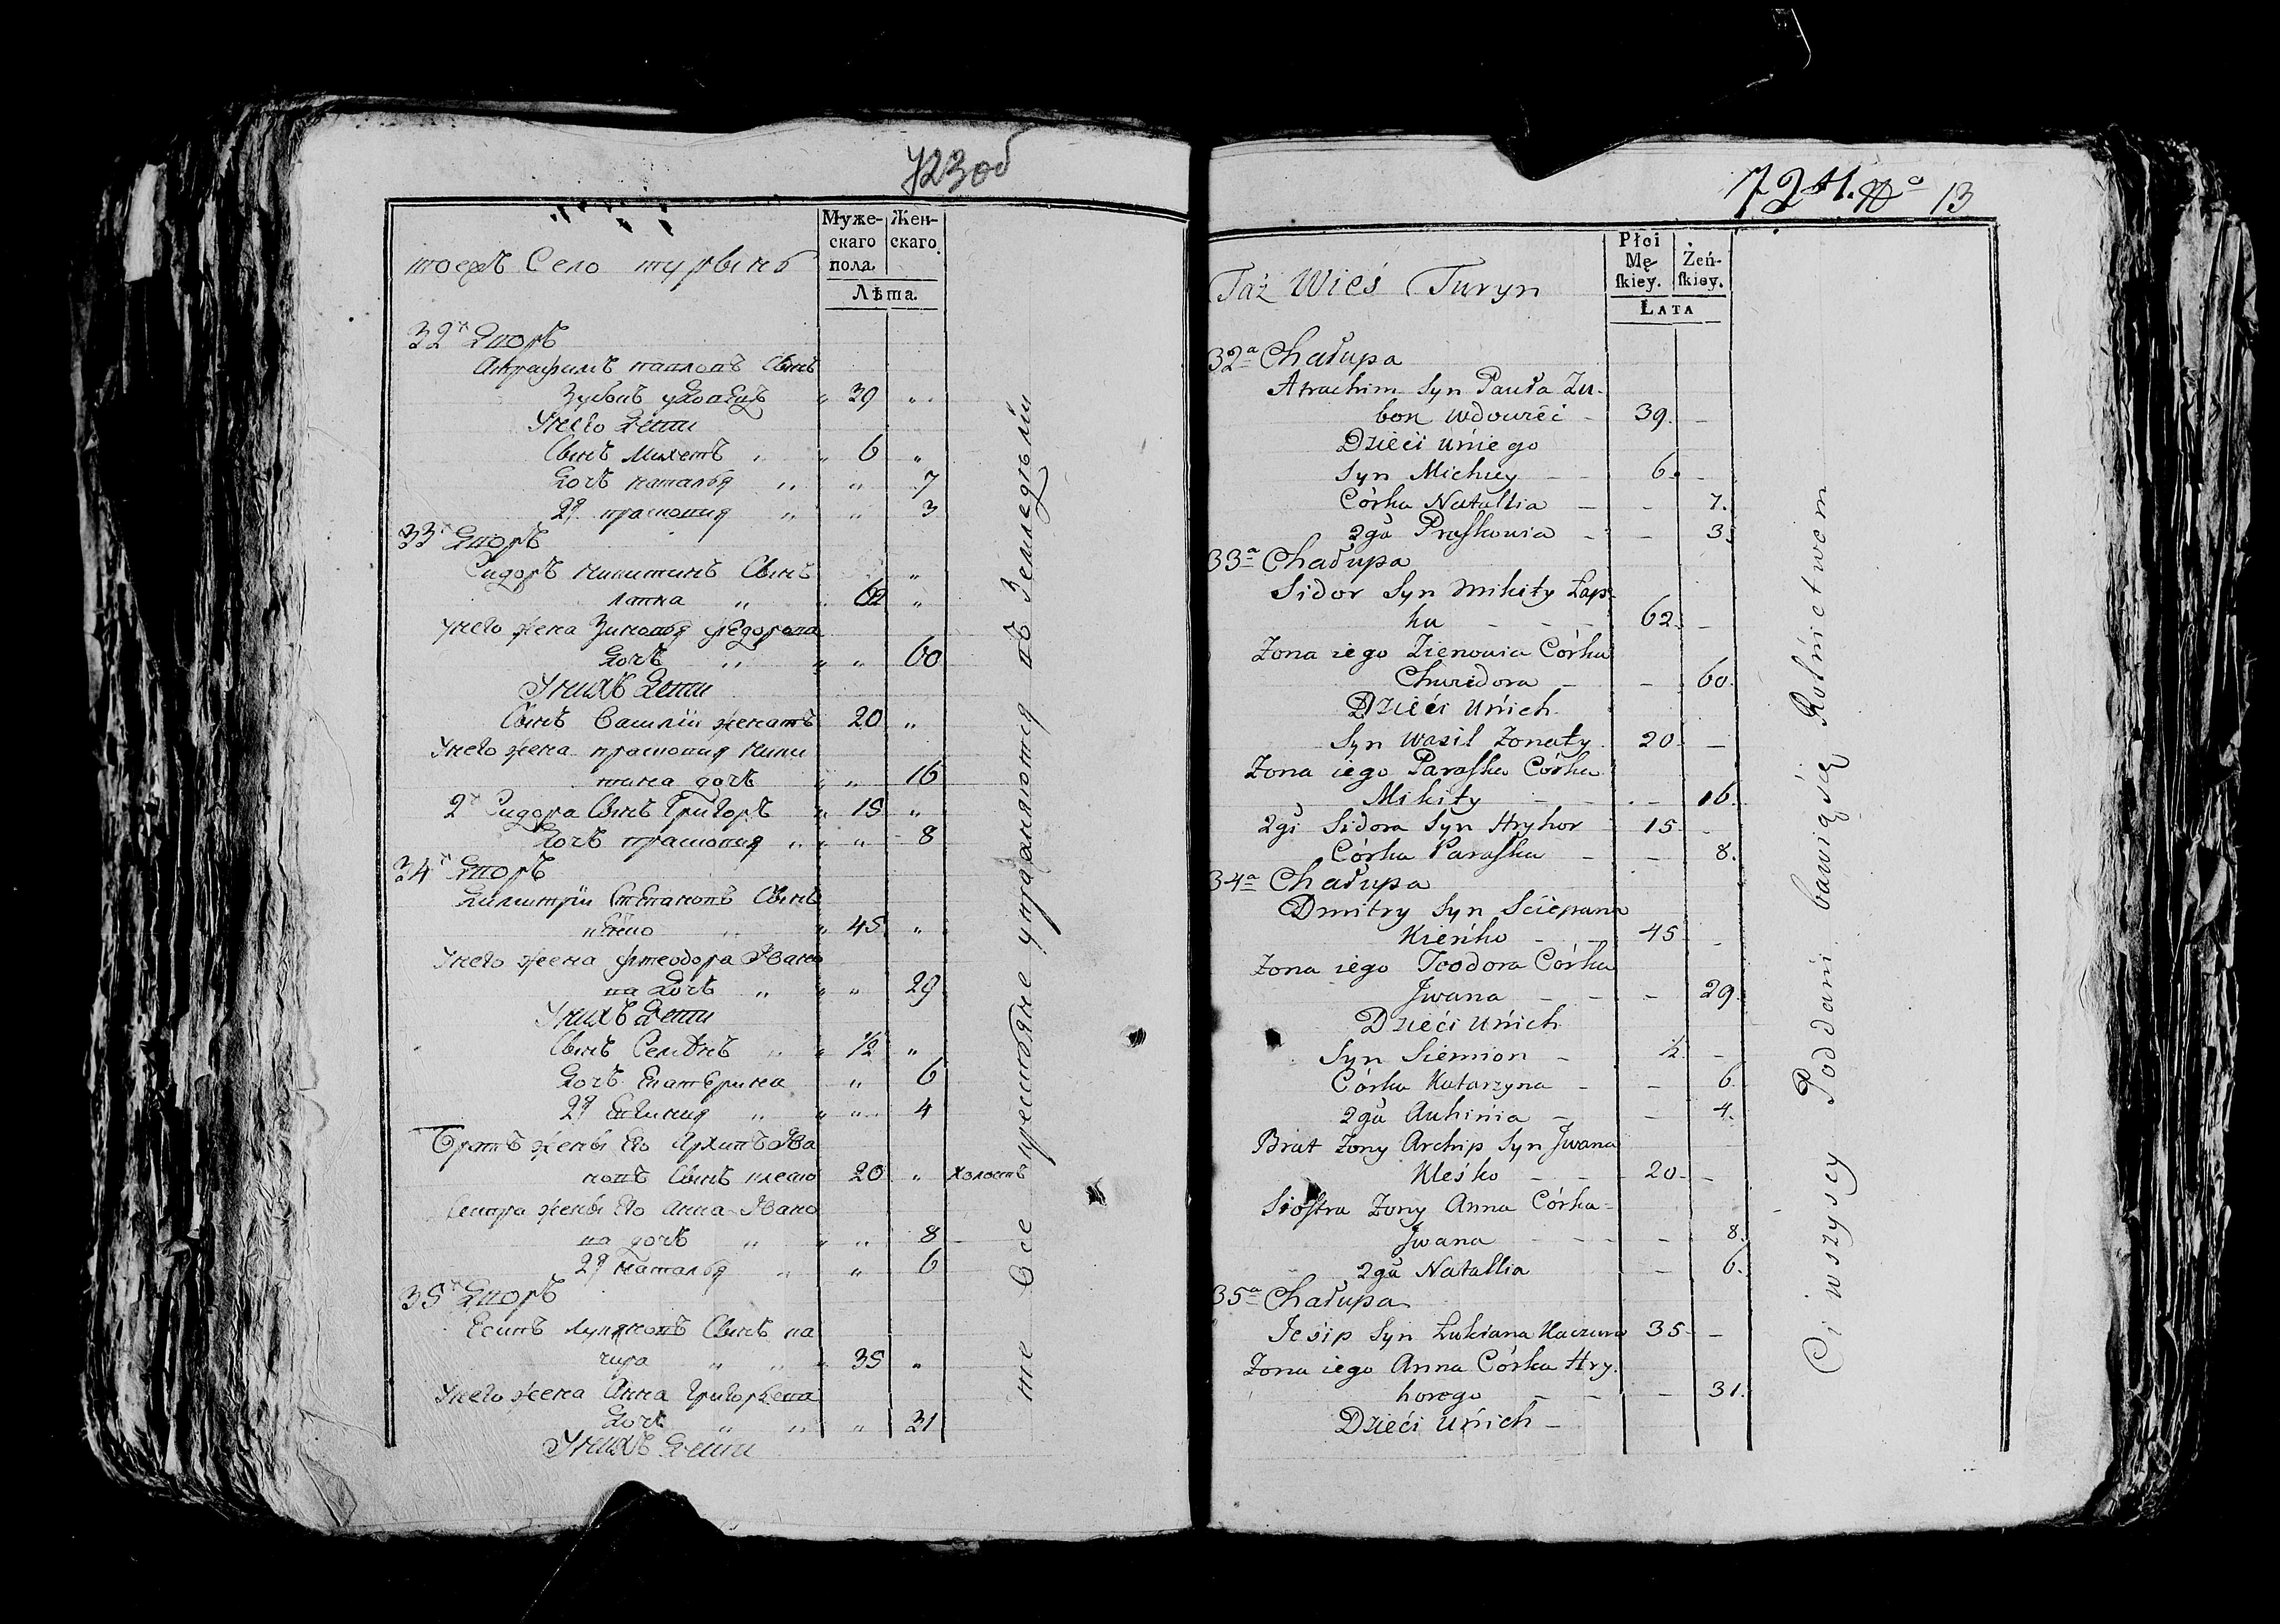 723 об
тоежъ Село турынъ
Муже-
скаго
пола.
Жен-
скаго.
Лѣта.
32й Дворъ
павловъ Сынъ
Зубонъ удовецъ „ 39 „
У него Дети
Сынъ Михей „ „ 6 „
Дочь наталья „ „ 7
2я прасковия „ „ 3
33й Дворъ
Сидоръ никитинъ Сынъ „
лапка „ „ 62 „
У него жена Зиновья федорова
Дочь „ „ „ 60
У нихъ Дети
Сынъ Василии женатъ 20 „
У него жена прасковия ники
тина дочь „ „ 16
2й Сидора Сынъ Григоръ „ 15 „
Дочь прасковия „ „ „ 8
34й Дворъ
Димитрии Степановъ Сынъ
„ 45 „
У него жена фтеодора Ивано
ва Дочь „ „ „ 29
У нихъ Дети
Сынъ Семіонъ „ „ ½ „
Дочь Екатерина „ 6
2я Евгиния „ „ „ 4
Братъ жены Его Архипъ Ива
новъ Сынъ клецко 20 „ Холостъ
Сестра жены Его Анна Ивано
ва дочь „ „ „ 8
2я наталья „ „ 6
35й Дворъ
Есипъ лукяновъ Сынъ ка
чура „ „ „ 35 „
У него жена Анна Григорьева
Дочь „ „ „ 31
У нихъ Дети
те Все крестьяне упражняются въ Земледѣлии
724. No 13
Taż Wieś Turyn
Płci
Mę-
skiey.
Żeń-
skiey.
Lata
32a Chałupa
Atrachim Syn Pauła Zu-
bon wdowiec - 39. -
Dzieci u niego
Syn Michiey - - 6. -
Córka Natallia - - 7.
2ga Praskowia - - 3.
33a Chałupa
Sidor Syn Mikity Łap-
ka - - - 62. -
Zona iego Zienowia Córka
Chwiedora - - 60.
Dzieci u nich
Syn Wasil Zonaty 20 -
Zona iego Paraska Córka
Mikity - - - 16.
2gi Sidora Syn Hryhor 15 -
Córka Paraska - - 8.
34a Chałupa
Dmitry Syn Sciepana
Kieńko - - 45 -
Zona iego Teodora Córka
Jwana - - - 29.
Dzieci u nich
Syn Siemion - ½ -
Córka Katarzyna - - 6.
2ga Auhinia - - 4.
Brat Zony Archip Syn Jwana
Kleśko - - 20 -
Siostra Zony Anna Córka
Jwana - - - 8.
2ga Natallia - 6.
35a Chałupa
Jesip Syn Łukiana Kaczura 35 -
Zona iego Anna Córka Hry-
horego - - - 31.
Dzieci u nich -
Ci wszyscy Poddani bawią się Rolnictwem